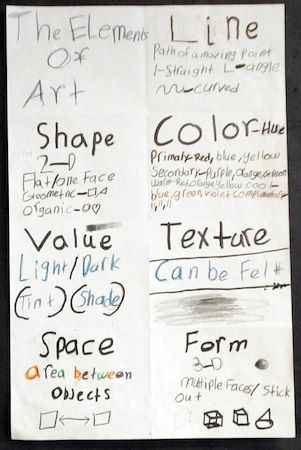 The Elements
Of
Art
Line
Path of a moving point
1-Straight L-angle
-curved
Shape
2-D
Flat/one Face
Geometric-
Organic-
Color-Hue
Primaty-Red, blue, yellow
Secondary-Purple, Orange, Green
warm-Red, Orange, yellow cool-
blue, green, violet
Value
Light/Dark
(Tint) (Shade)
Texture
Can be Felt
Space
area between
Objects
Form
3-D
multiple Faces/Stick
Out